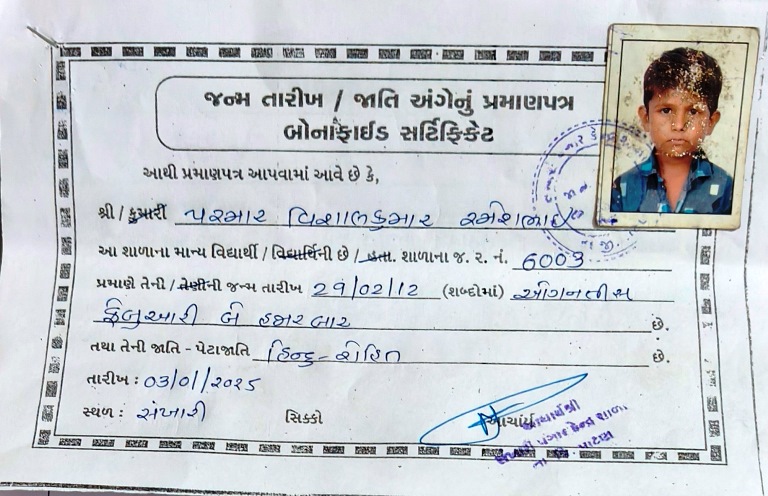 જન્મ તારીખ / જાતિ અંગેનું પ્રમાણપત્ર
બોનાફાઈડ સર્ટિફિકેટ
આથી પ્રમાણપત્ર આપવામાં આવે છે કે,
શ્રી / કુમારી પરમાર વિશાલકુમાર રમેશભાઈ
આ શાળાના માન્ય વિદ્યાર્થી / વિદ્યાર્થિની છે / હતા. શાળાના જ. ર. નં. 6003
પ્રમાણે તેની / તેણીની જન્મ તારીખ 29/02/12 (શબ્દોમાં) ઓગનતીસ
ફેબ્રુઆરી બે હજાર બાર છે.
તથા તેની જાતિ - પેટાજાતિ હિન્દુ - રોહિત છે.
તારીખ : 03/01/2025
સ્થળ : સંખારી સિક્કો આચાર્ય
આચાર્યશ્રી
પગાર કેન્દ્ર શાળા
તા. જિ. પાટણ